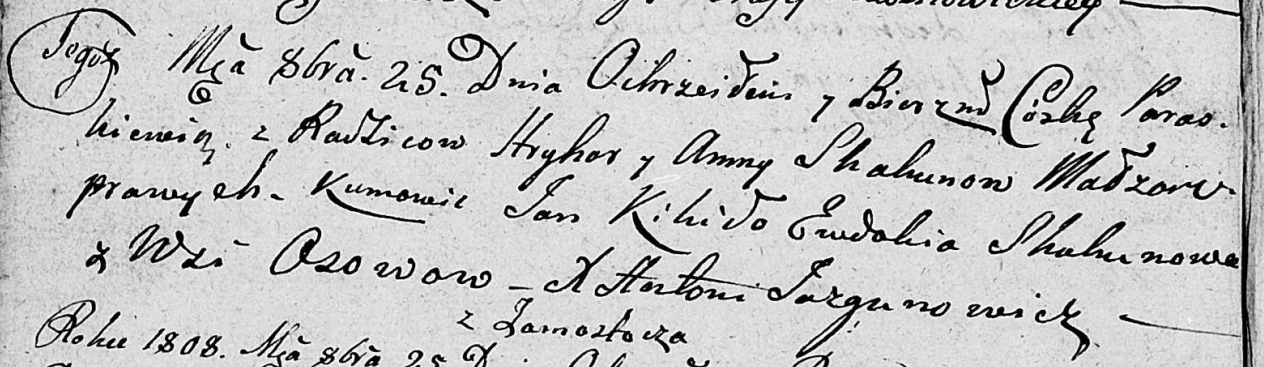 Tegoż Mca 8bra. 25. Dnia Ochrzciłem y Bierzm Córkę Paras-
kiewią. z Radzicow Hryhor y Anny Skakunow Madzony
prawych. Kumowie Jan Kikiło Ewdokia Skakunowa
z Wsi Osowow _ X Antoni Jazgunowicz
z Zamostocza
Roku 1808. Mca 8bra 25 D